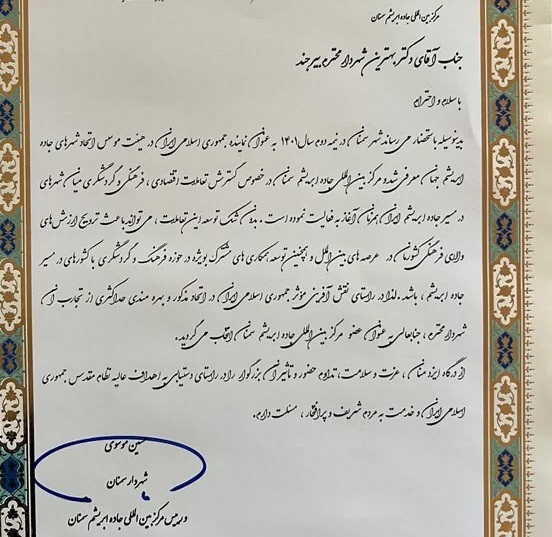 مرکز بین المللی جاده ابریشم سمنان
جناب آقای دکتر بهترین شهردار محترم بیرجند
با سلام و احترام
بدینوسیله باستحضار می رساند شهر سمنان در نیمه دوم سال ۱۴۰۱ به عنوان نماینده جمهوری اسلامی ایران در هیئت موسس اتحاد شهرهای جاده
ابریشم جهان معرفی شد و مرکز بین المللی جاده ابریشم سمنان در خصوص گسترش تعاملات اقتصادی ، فرهنگی و گردشگری میان شهرهای
در مسیر جاده ابریشم ایران همزمان آغاز به فعالیت نموده است . بدون شک توسعه این تعاملات ، می تواند باعث ترویج ارزش های
والای فرهنگی کشورمان در عرصه های بین الملل و همچنین توسعه همکاری های مشترک بویژه در حوزه فرهنگ و گردشگری با کشورهای در مسیر
جاده ابریشم ، باشد . لذا در راستای نقش آفرینی مؤثر جمهوری اسلامی ایران در اتحاد مذکور و بهره مندی حداکثری از تجارب آن
شهردار محترم ، جنابعالی به عنوان عضو مرکز بین المللی جاده ابریشم سمنان انتخاب می گردید.
از درگاه ایزد منان ، عزت و سلامت، تداوم حضور و تأثیر آن بزرگوار را در راستای دستیابی به اهداف عالیه نظام مقدس جمهوری
اسلامی ایران و خدمت به مردم شریف و پرافتخار ، مسئلت دارم.
حسین موسوی
شهردار سمنان
و رییس مرکز بین المللی جاده ابریشم سمنان